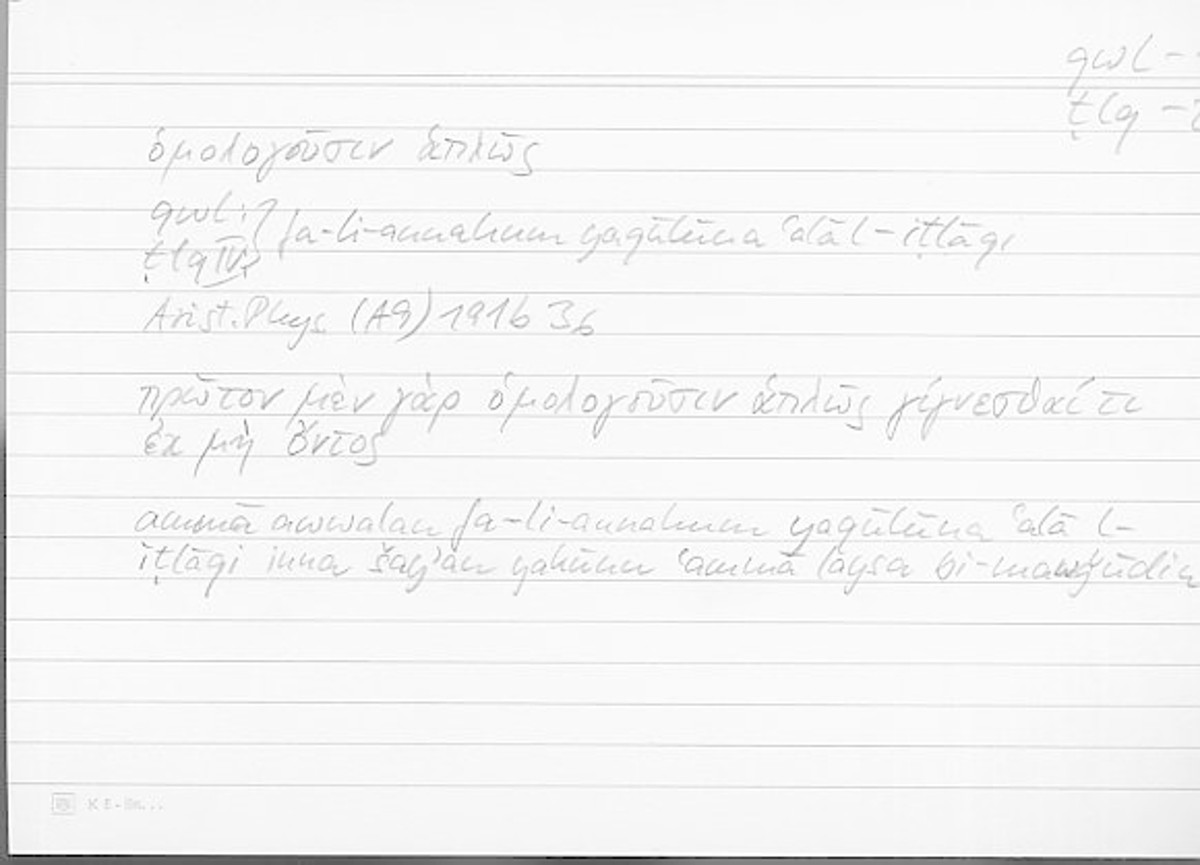 qwl -
ṭlq -
ὁμολογοῦσιν ἁπλῶς
qwl:
ṭlq IV
fa-li-annahum yaqūlūna ʿalā l-iṭlāqi
Arist. Phys. (A9) 191b 36
πρῶτον μὲν γὰρ ὁμολογοῦσιν ἁπλῶς γίγνεσθαί τι
ἐκ μὴ ὄντος
ammā awwalan fa-li-annahum yaqūlūna ʿalā l-
iṭlāqi inna šayʾan yakūnu ʿammā laysa bi-mawǧūdin